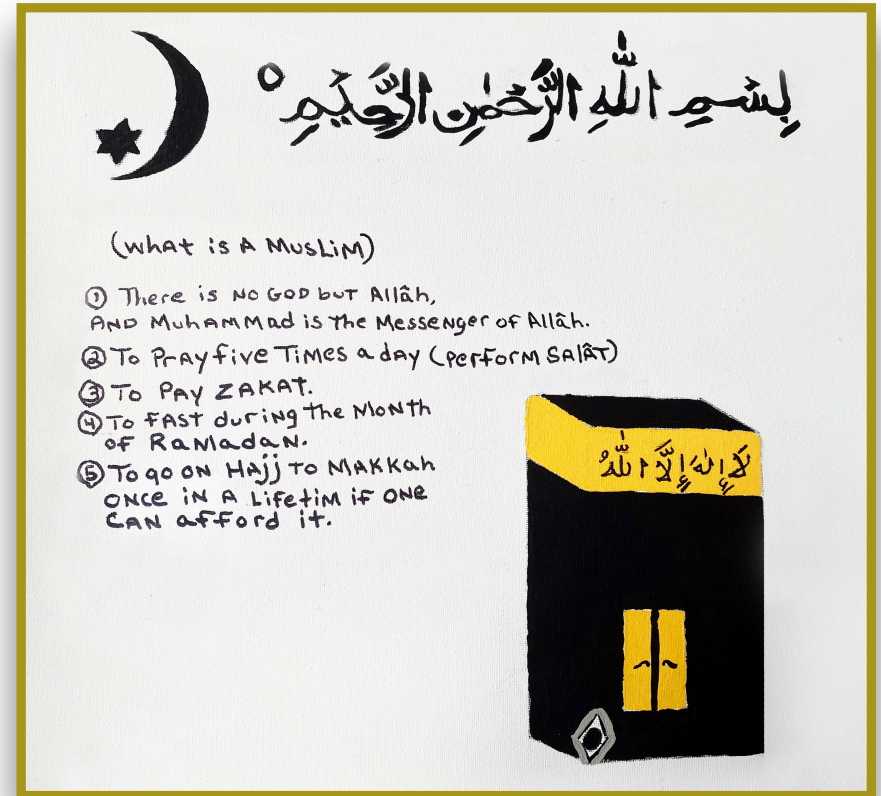 بِسْمِ اللّٰهِ الرَّحْمٰنِ الرَّحِيْمِ ○
(What is A Muslim)
① There is NO GOD but Allâh,
AND Muhammad is the Messenger of Allâh.
② To Pray five Times a day (Perform Salât)
③ To Pay ZAKAT.
④ To FAST during the Month
of Ramadan.
⑤ To go on Hajj to Makkah
once in A Lifetim if one
can afford it.
لَا إِلٰهَ إِلَّا اللّٰهُ